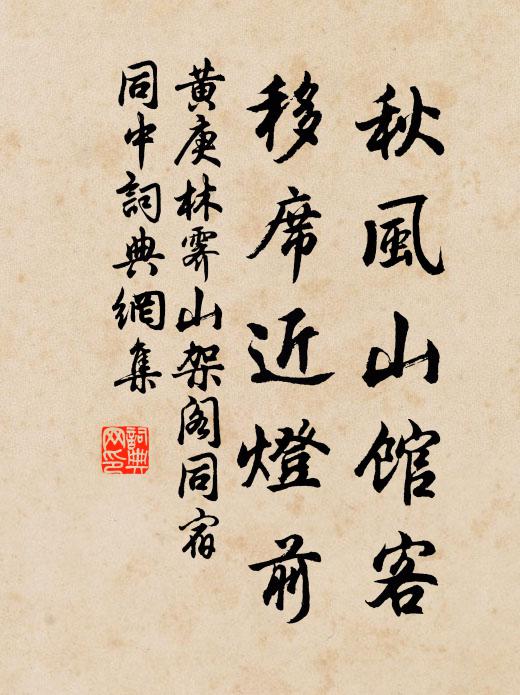 秋風山館客
移席近燈前
黃庚林霽山架閣同宿
同中詞典網集
詞典
网印